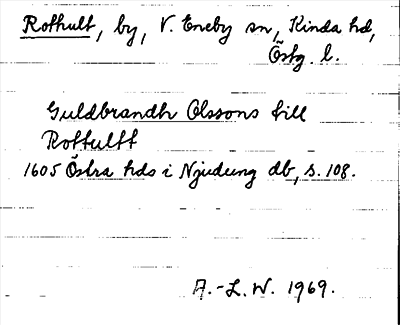 Rothult, by, V. Eneby sn, Kinda hd,
Östg. l.
Guldbrandh Olssons till
Rottultt
1605 Östra hds i Njudung db, s. 108.
A.-L.W. 1969.